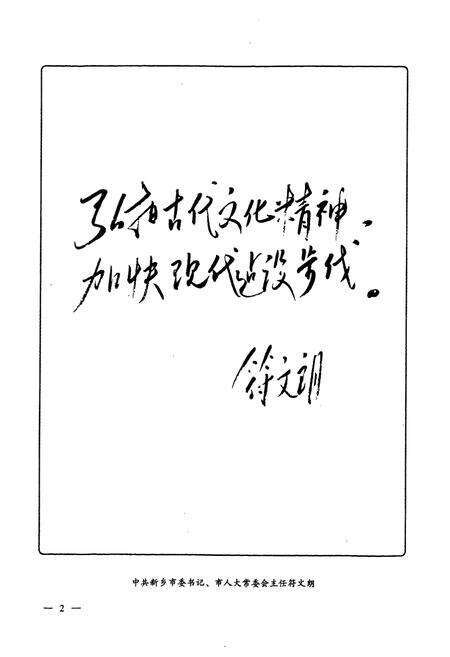 弘扬古代文化精神、
加快现代建设步伐。
符文朗
中共新乡市委书记、市人大常委会主任符文朗
— 2 —